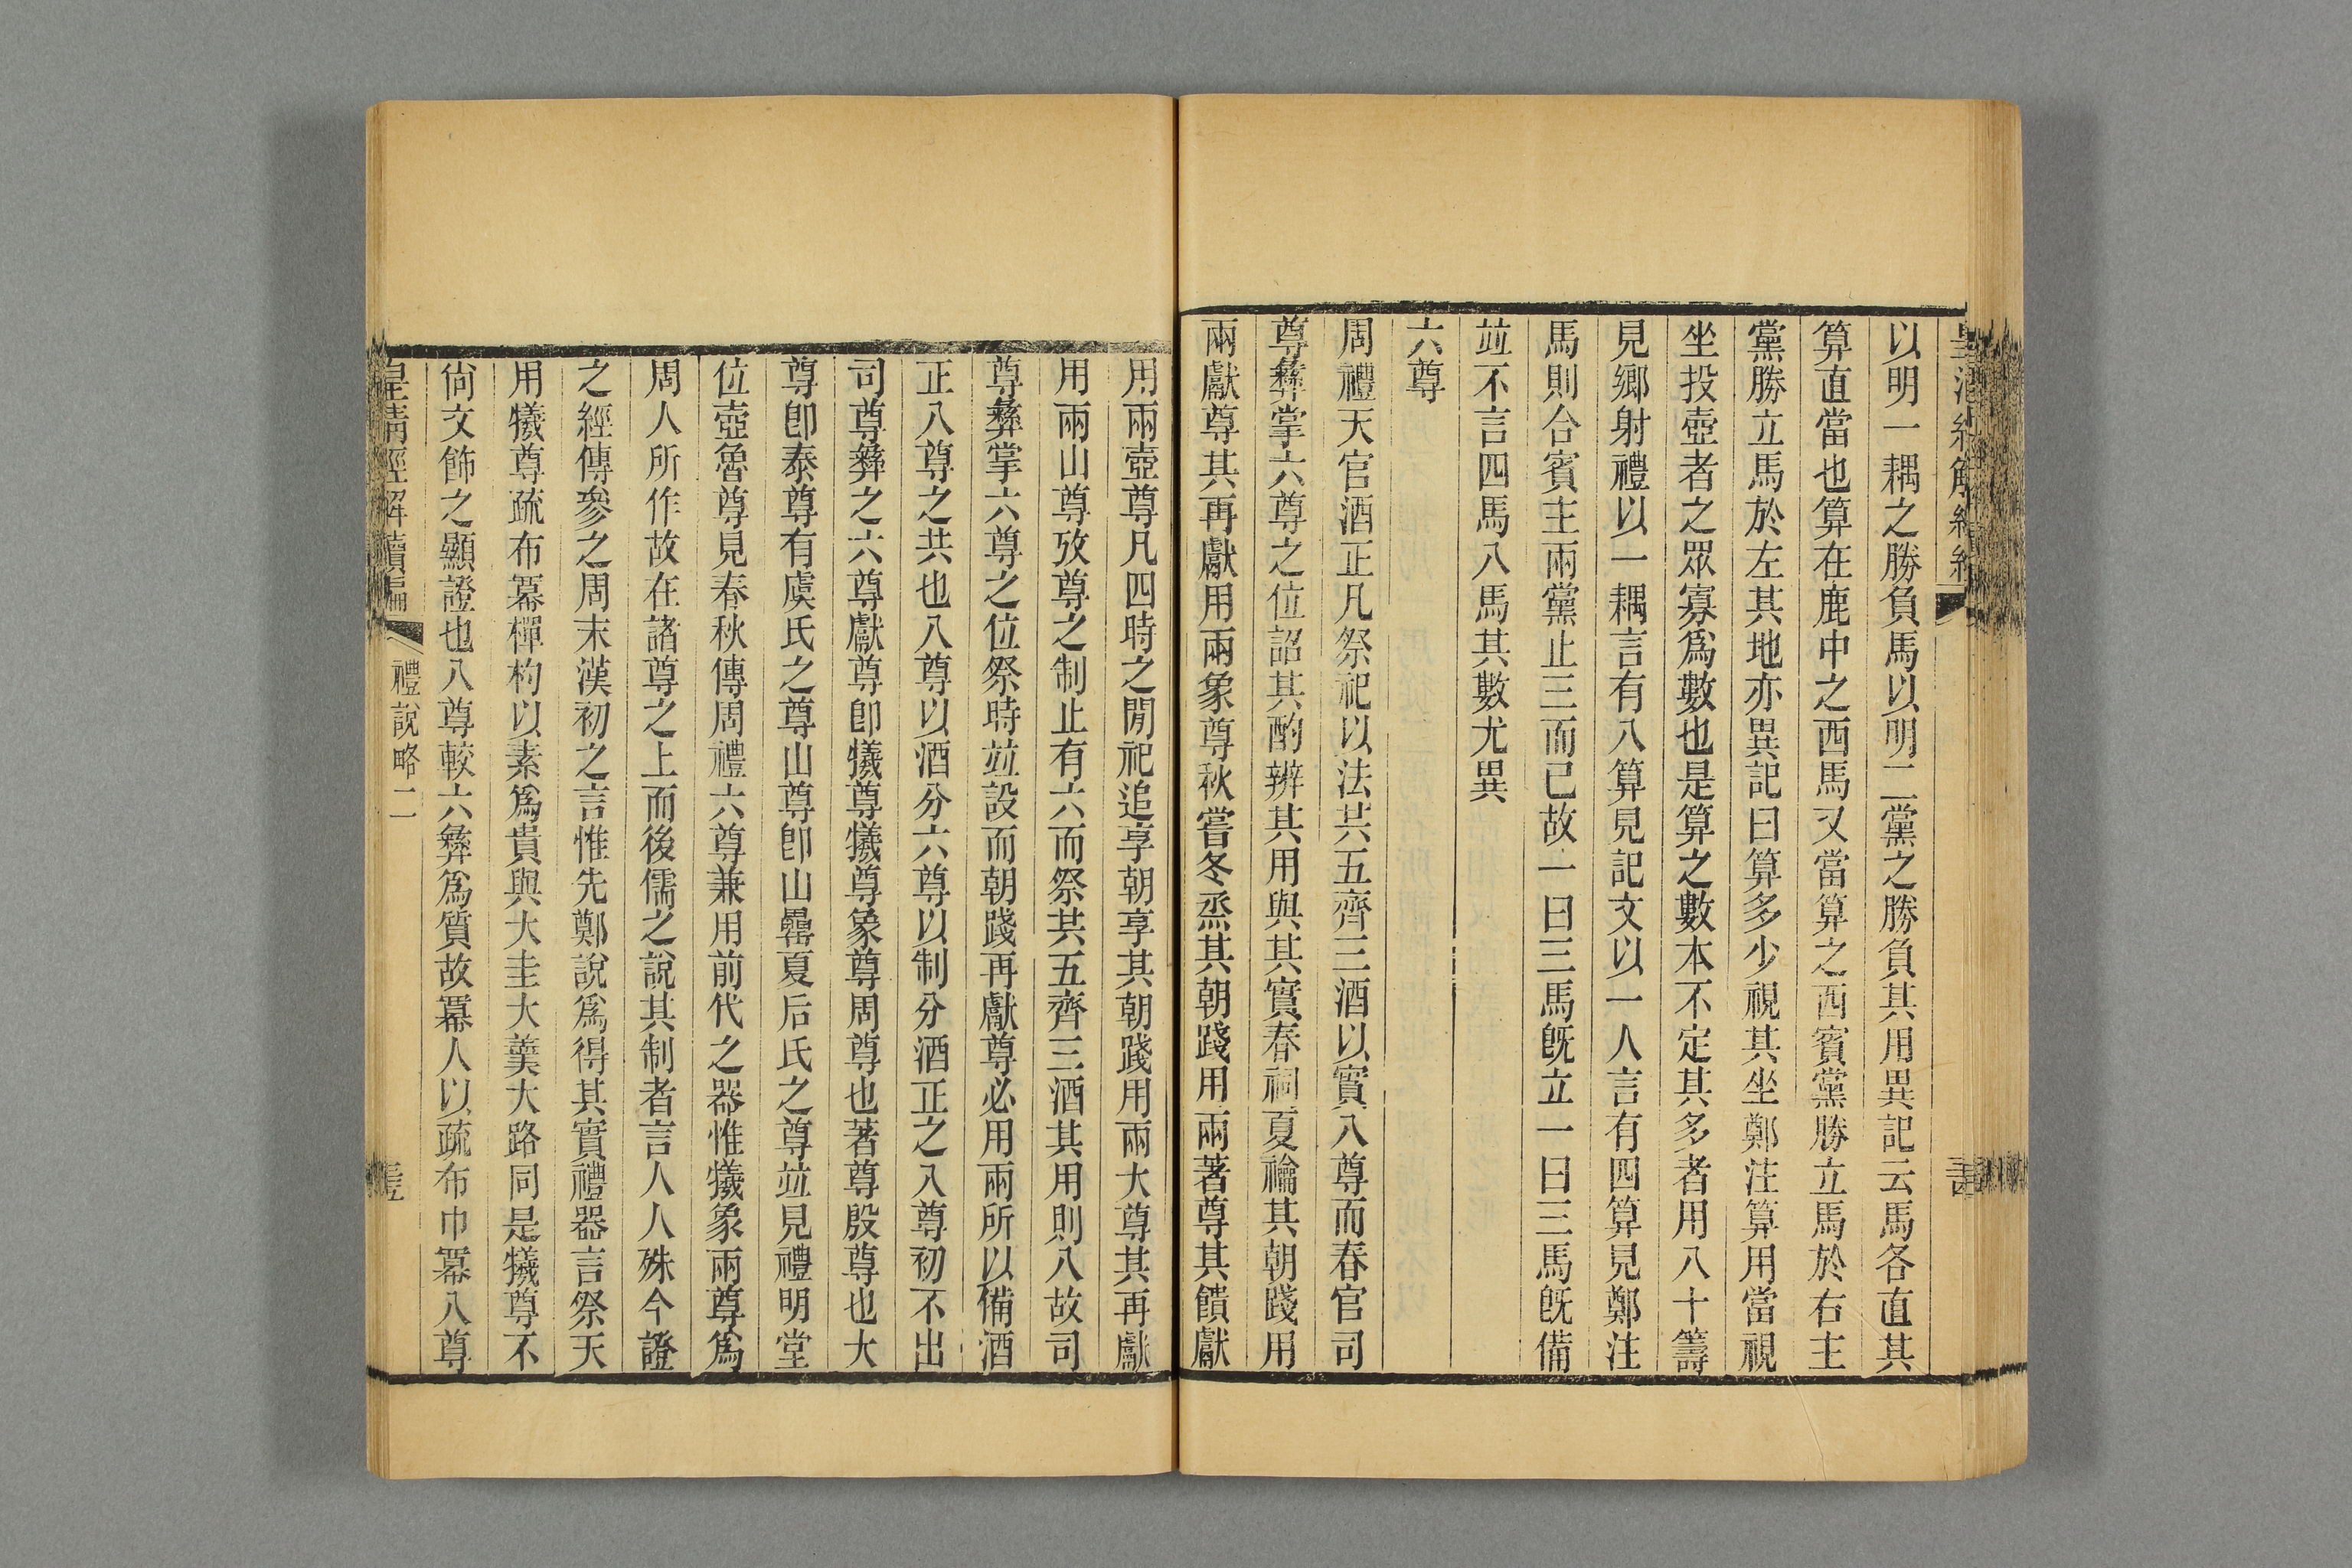 以明一耦之勝負馬以明二黨之勝負其用異記云馬各直其
算直當也算在鹿中之西馬又當算之西賓黨勝立馬於右主
黨勝立馬於左其地亦異記曰算多少視其坐鄭注算用當視
坐投壺者之眾寡爲數也是算之數本不定其多者用八十籌
見鄉射禮以一耦言有八算見記文以一人言有四算見鄭注
馬則合賓主兩黨止三而已故一曰三馬旣立一曰三馬旣備
竝不言四馬八馬其數尤異
六尊
周禮天官酒正凡祭祀以法共五齊三酒以實八尊而春官司
尊彝掌六尊之位詔其酌辨其用與其實春祠夏禴其朝踐用
兩獻尊其再獻用兩象尊秋嘗冬烝其朝踐用兩著尊其饋獻
用兩壺尊凡四時之閒祀追享朝享其朝踐用兩大尊其再獻
用兩山尊攷尊之制止有六而祭共五齊三酒其用則八故司
尊彝掌六尊之位祭時竝設而朝踐再獻尊必用兩所以備酒
正八尊之共也八尊以酒分六尊以制分酒正之入尊初不出
司尊彝之六尊獻尊卽犧尊犧尊象尊周尊也著尊殷尊也大
尊卽泰尊有虞氏之尊山尊卽山罍夏后氏之尊竝見禮明堂
位壺魯尊見春秋傳周禮六尊兼用前代之器惟犧象兩尊爲
周人所作故在諸尊之上而後儒之說其制者言人人殊今證
之經傳參之周末漢初之言惟先鄭說爲得其實禮器言祭天
用犧尊疏布冪樿杓以素爲貴與大圭大羹大路同是犧尊不
尙文飾之顯證也八尊較六彝爲質故冪人以疏布巾冪八尊
皇淸經解續編
禮說略二